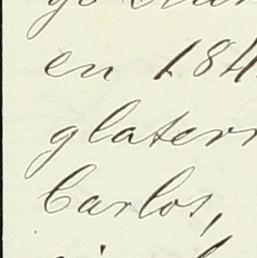 en 184
glaterr
Carlos,